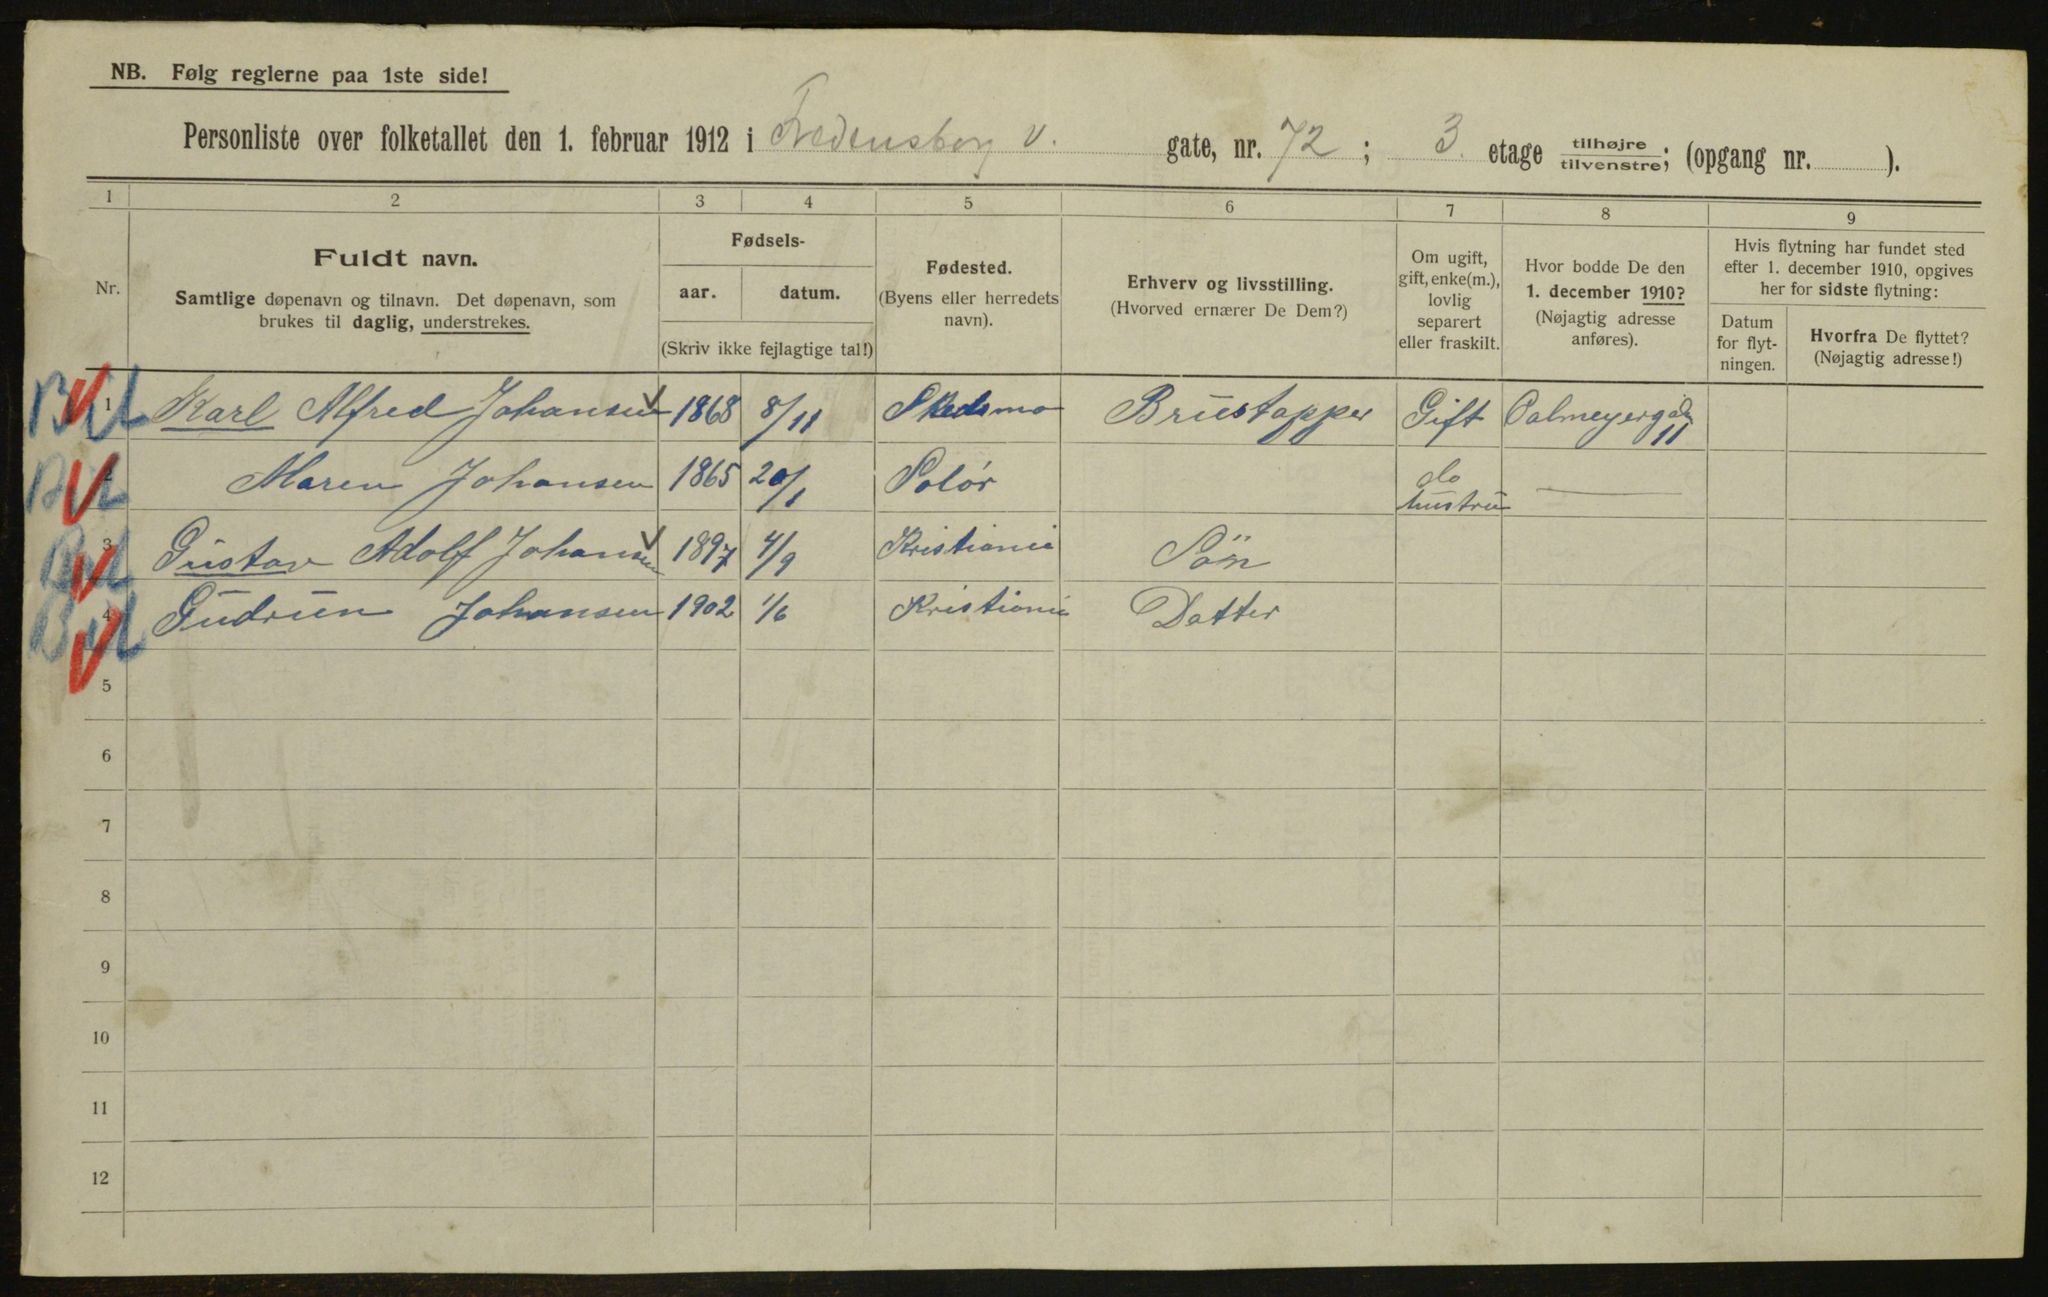 NB. Følg reglerne paa 1ste side!
Personliste over folketallet den 1. februar 1912 i Fredensborg v. gate, nr. 72; 3. etage tilhøjre/tilvenstre; (opgang nr. ).
1 2 3 4 5 6 7 8 9
Nr.
Fuldt navn.
Samtlige døpenavn og tilnavn. Det døpenavn, som
brukes til daglig, understrekes.
Fødsels-
aar. datum.
(Skriv ikke fejlagtige tal!)
Fødested.
(Byens eller herredets
navn).
Erhverv og livsstilling.
(Hvorved ernærer De Dem?)
Om ugift,
gift, enke(m.),
lovlig
separert
eller fraskilt.
Hvor bodde De den
1. december 1910?
(Nøjagtig adresse
anføres).
Hvis flytning har fundet sted
efter 1. december 1910, opgives
her for sidste flytning:
Datum
for flyt-
ningen.
Hvorfra De flyttet?
(Nøjagtig adresse!)
1 Karl Alfred Johansen 1868 8/11 Skedsmo Brüstapper Gift
11
2 Maren Johansen 1865 20/1 Solör do
hustru
3 Gustav Adolf Johansen 1897 4/9 Kristiania Sön
4 Gudrun Johansen 1902 1/6 Kristiania Datter
5
6
7
8
9
10
11
12